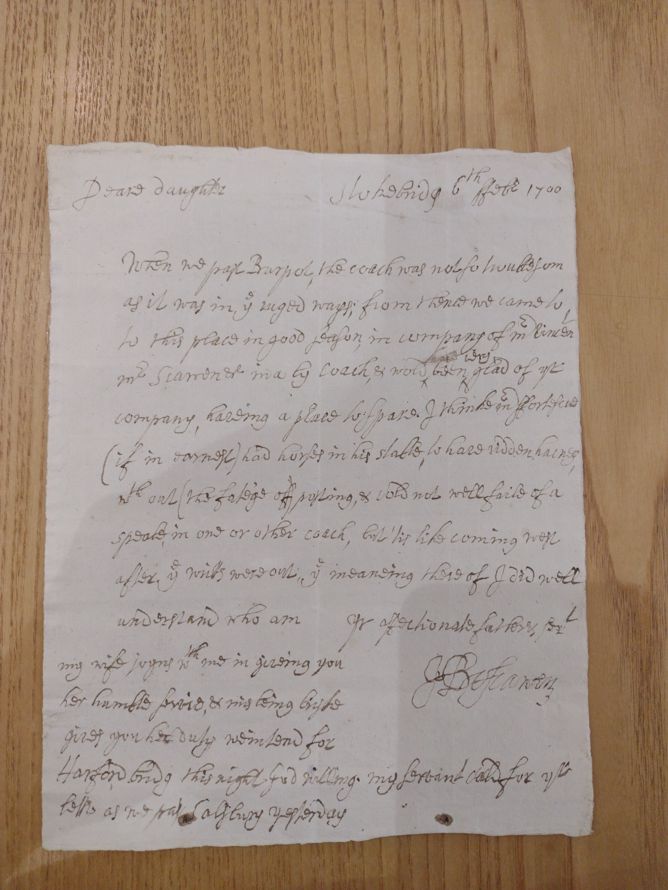 Deare daughter Stokebridg 6th ffebr 1700
When we past Burpot, the coach was not so troublesom
as it was in, ye ruged ways: from thence we came to
to this place in good season, in company of mr
mrs in a by coach, & wold been very glad of yt
company, haveing a place to spare. I thinke mr ffortescue
(if in earnest) had horses in his stable, to have ridden
wth out (the fatége of) posting, & cold not well faile of a
in one or other coach, but 'tis like coming west
after ye were out, ye meaneing there of I did well
understand who am Yr affectionate father & servt
my wife joyns wth me in giveing you JBoscawen
her humble servis, &
gives you her duty we intend for
Harford bridg this night god willing. my servant cald for yor
as we past Salsbury yesterday